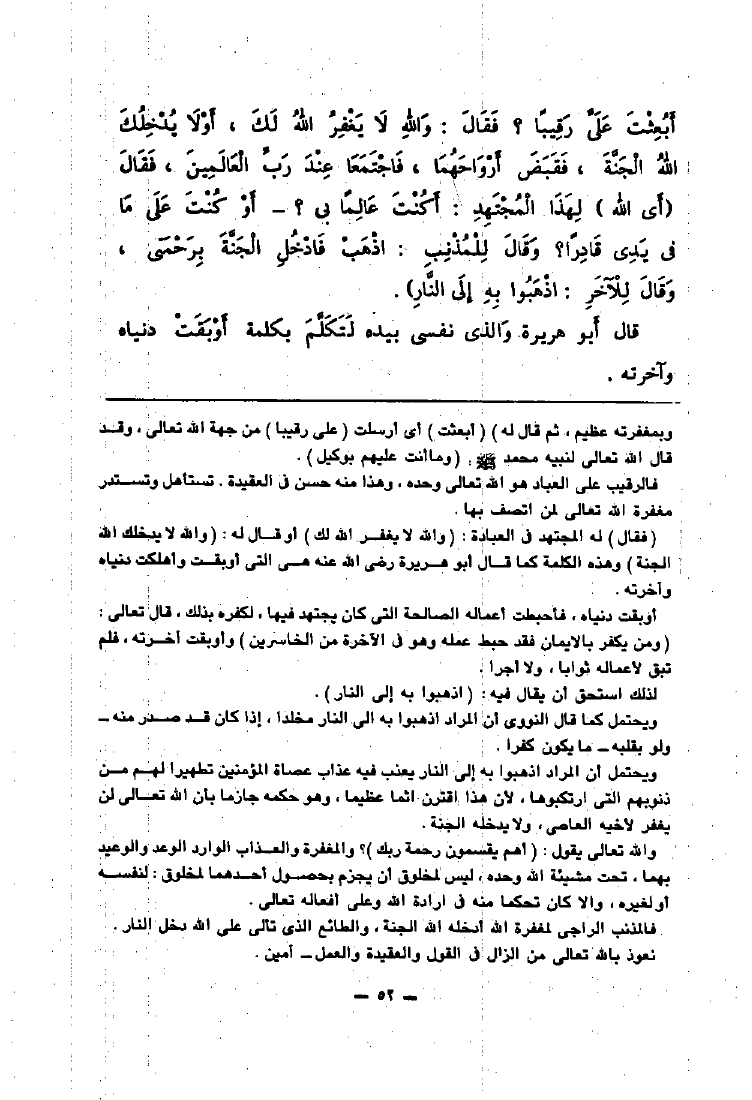 أَبُعِثْتَ عَلَىَّ رَقِيبًا ؟ فَقَالَ : وَاللهِ لَا يَغْفِرُ اللهُ لَكَ ، أَوْلَا يُدْخِلُكَ
اللهُ الْجَنَّةَ ، فَقَبَضَ أَرْوَاحَهُمَا ، فَاجْتَمَعَا عِنْدَ رَبِّ الْعَالَمِينَ ، فَقَالَ
(أَى الله ) لِهَذَا الْمُجْتَهِدِ : أَكُنْتَ عَالِمًا بِى ؟ – أَوْ كُنْتَ عَلَى مَا
فِى يَدِى قَادِرًا؟ وَقَالَ لِلْمُذْنِبِ : اذْهَبْ فَادْخُلِ الْجَنَّةَ بِرَحْمَتِى ،
وَقَالَ لِلْآخَرِ : اذْهَبُوا بِهِ إِلَى النَّارِ) .
قال أَبو هريرة وَالذى نفسى بيده لَتَكَلَّمَ بكلمة أَوْبَقَتْ دنياه
وآخرته .
وبمغفرته عظيم ، ثم قال له ) (أبعثت ) أى أرسلت ( على رقيبا ) من جهة الله تعالى ، وقد
قال الله تعالى لنبيه محمد ﷺ : (وماانت عليهم بوكيل ) .
فالرقيب على العباد هو الله تعالى وحده ، وهذا منه حسن فى العقيدة . تستأهل وتستدر
مغفرة الله تعالى لمن اتصف بها .
(فقال ) له المجتهد فى العبادة : ( والله لا يغفر الله لك ) أو قال له : (والله لا يدخلك الله
الجنة ) وهذه الكلمة كما قال أبو هريرة رضى الله عنه هى التى أوبقت وأهلكت دنياه
وآخرته .
أوبقت دنياه ، فأحبطت أعماله الصالحة التى كان يجتهد فيها ، لكفره بذلك ، قال تعالى :
( ومن يكفر بالايمان فقد حبط عمله وهو فى الآخرة من الخاسرين ) وأوبقت أخرته ، فلم
تبق لأعماله ثوابا ، ولا أجرا .
لذلك استحق أن يقال فيه : ( اذهبوا به إلى النار ) .
ويحتمل كما قال النووى أن المراد اذهبوا به الى النار مخلدا ، إذا كان قد صدر منه –
ولو بقلبه – ما يكون كفرا .
ويحتمل أن المراد اذهبوا به إلى النار يعذب فيه عذاب عصاة المؤمنين تطهيرا لهم من
ذنوبهم التى ارتكبوها ، لأن هذا اقترن اثما عظيما ، وهو حكمه جازما بأن الله تعالى لن
يغفر لأخيه العاصى ، ولا يدخله الجنة .
والله تعالى يقول : ( أهم يقسمون رحمة ربك )؟ والمغفرة والعذاب الوارد الوعد والوعيد
بهما ، تحت مشيئة الله وحده ، ليس لمخلوق أن يجزم بحصول أحدهما لمخلوق : لنفسه
أو لغيره ، والا كان تحكما منه فى ارادة الله وعلى أفعاله تعالى .
فالمذنب الراجى لمغفرة الله أدخله الله الجنة ، والطائع الذى تألى على الله دخل النار .
نعوذ بالله تعالى من الزال فى القول والعقيدة والعمل – أمين .
– ٥٢ –